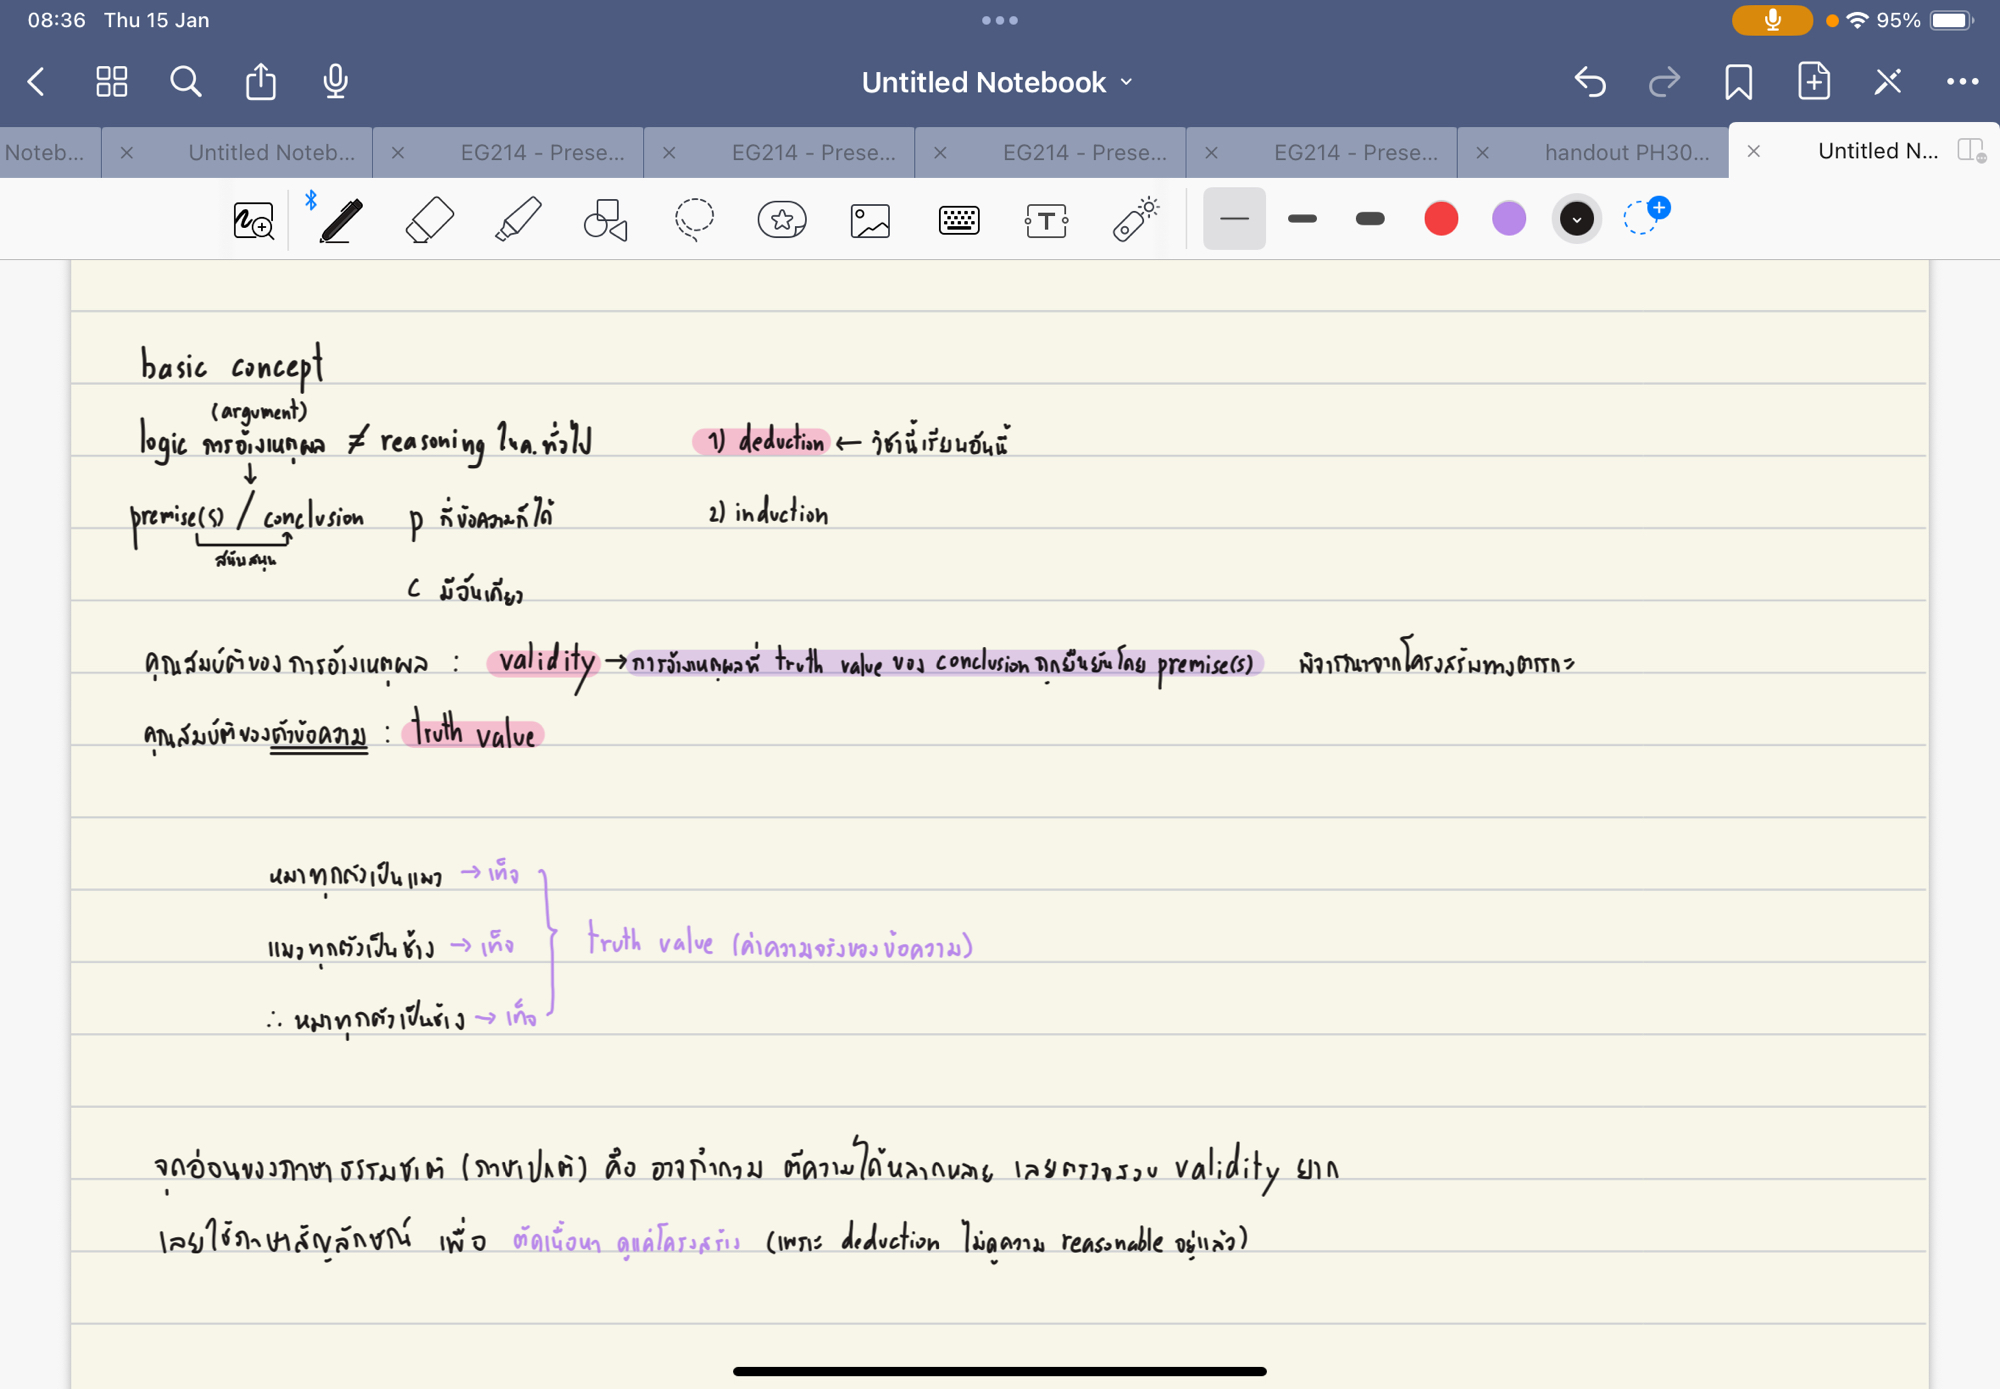 08:36 Thu 15 Jan
95%
Untitled Notebook
Noteb...
Untitled Noteb...
EG214 - Prese...
EG214 - Prese...
EG214 - Prese...
EG214 - Prese...
handout PH30...
Untitled N...
basic concept
(argument)
logic การอ้างเหตุผล ≠ reasoning ในค.ทั่วไป
1) deduction ← วิชานี้เรียนอันนี้
↓
premise(s) / conclusion
p กี่ข้อความก็ได้
2) induction
สนับสนุน
c มีอันเดียว
คุณสมบัติของการอ้างเหตุผล : validity → การอ้างเหตุผลที่ truth value ของ conclusion ถูกยืนยันโดย premise(s) พิจารณาจากโครงสร้างทางตรรกะ
คุณสมบัติของตัวข้อความ : truth value
หมาทุกตัวเป็นแมว → เท็จ
แมวทุกตัวเป็นช้าง → เท็จ
truth value (ค่าความจริงของข้อความ)
∴ หมาทุกตัวเป็นช้าง → เท็จ
จุดอ่อนของภาษาธรรมชาติ (ภาษาปกติ) คือ อาจกำกวม ตีความได้หลากหลาย เลยตรวจสอบ validity ยาก
เลยใช้ภาษาสัญลักษณ์ เพื่อ ตัดเนื้อหา ดูแค่โครงสร้าง (เพราะ deduction ไม่ดูความ reasonable อยู่แล้ว)